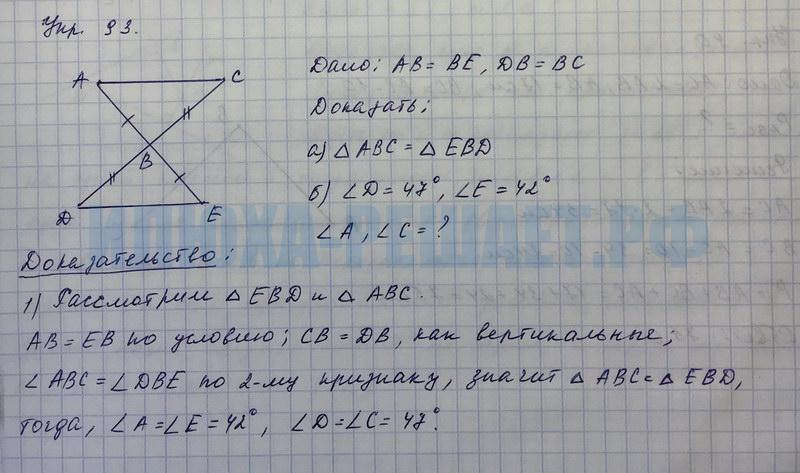 Упр. 93.
A
C
B
D
E
Дано: AB = BE, DB = BC
Доказать:
а) △ ABC = △ EBD
б) ∠D = 47°, ∠E = 42°
∠A, ∠C = ?
Доказательство:
1) Рассмотрим △ EBD и △ ABC.
AB = EB по условию; CB = DB, как вертикальные;
∠ABC = ∠DBE по 2-му признаку, значит △ ABC = △ EBD,
тогда, ∠A = ∠E = 42°, ∠D = ∠C = 47°.